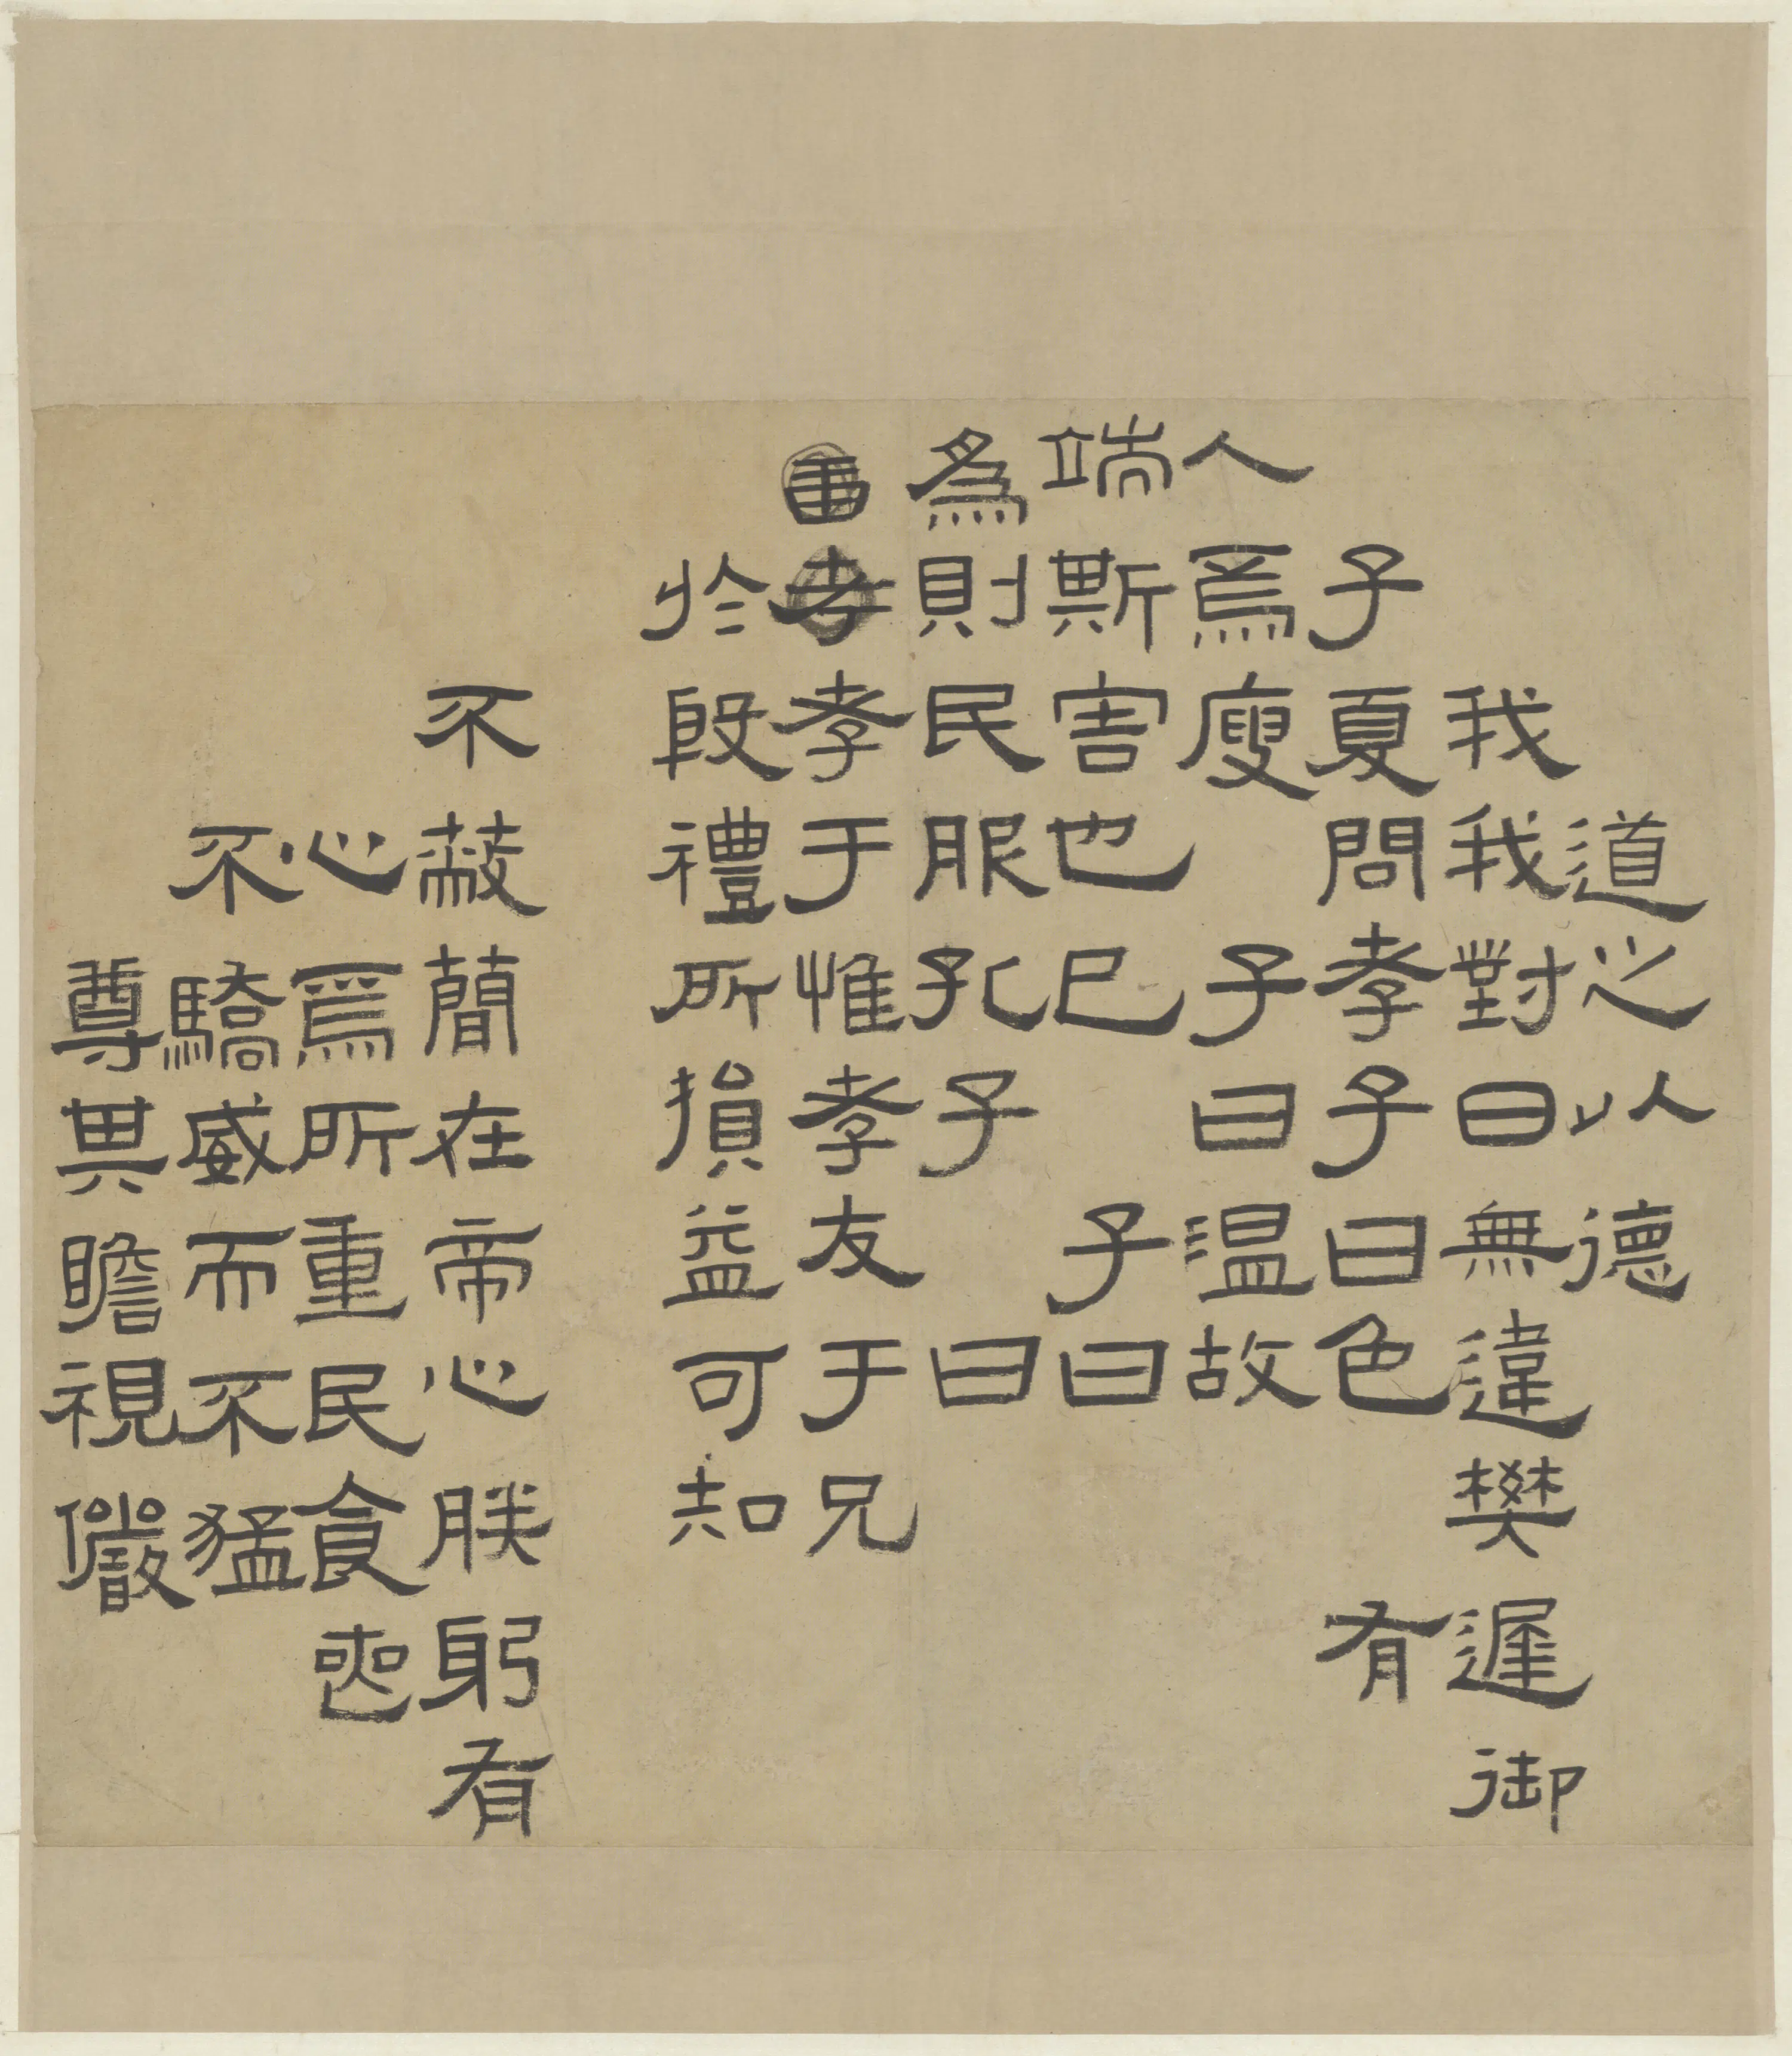 道之以德
我我對曰無違樊遲御
子夏問孝子曰色 有
人焉廋 子曰温故
端斯害也已 子曰
為則民服孔子 曰
書孝于惟孝友于兄
於殷禮所損益可知
不蔽簡在帝心朕躬有
心焉所重民食喪
不驕威而不猛
尊其瞻視儼